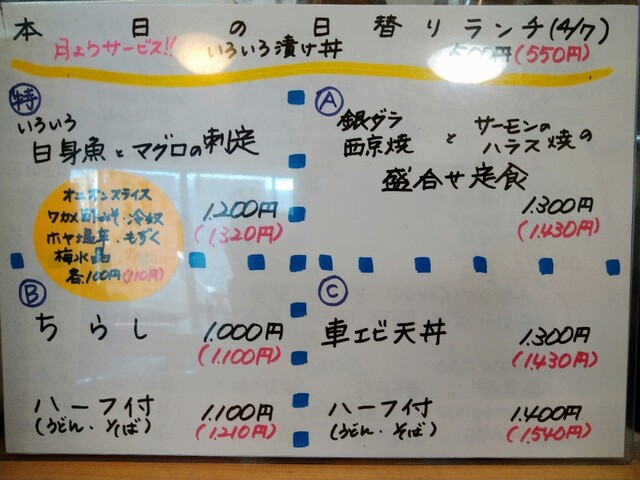 本日の日替りランチ(4/7)
月よりサービス!! いろいろ漬け丼 500円(550円)
特
いろいろ
白身魚とマグロの刺定
1.200円
(1.320円)
オニオンスライス
ワカメ酢みそ・冷奴
ホヤ塩辛・もずく
梅水晶
各.100円(110円)
A
銀ダラ
西京焼 と サーモンの
ハラス焼の
盛合せ定食
1.300円
(1.430円)
B
ちらし 1.000円
(1.100円)
ハーフ付 1.100円
(うどん・そば) (1.210円)
C
車エビ天丼 1.300円
(1.430円)
ハーフ付 1.400円
(うどん・そば) (1.540円)